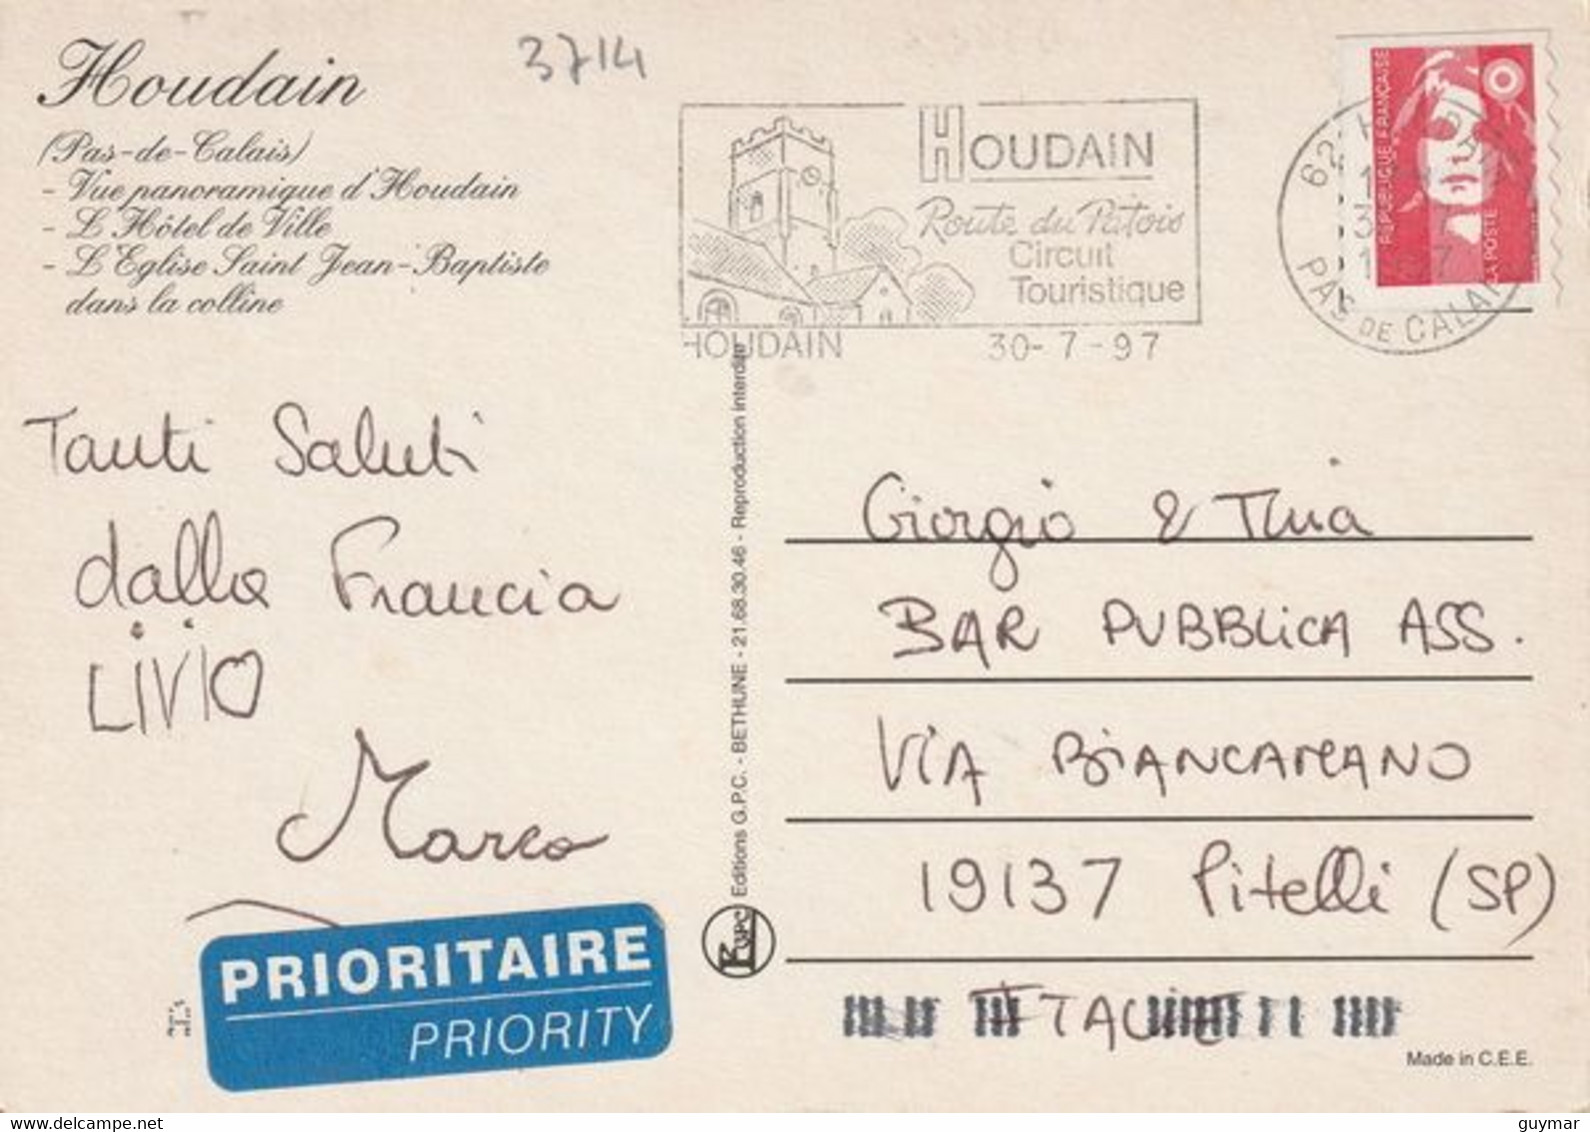 Houdain
3714
(Pas-de-Calais)
- Vue panoramique d'Houdain
- L'Hôtel de Ville
- L'Eglise Saint Jean-Baptiste
dans la colline
HOUDAIN
Route du Patois
Circuit
Touristique
HOUDAIN 30-7-97
REPUBLIQUE FRANÇAISE
LA POSTE
62
PAS DE CALAIS
Tanti Saluti
dalla Francia
LIVIO
Marco
PRIORITAIRE
PRIORITY
Editions G.P.C. - BETHUNE - 21.68.30.46 - Reproduction interdite
GPC
Giorgio &
BAR PUBBLICA ASS.
VIA BIANCAMANO
19137 Pitelli (SP)
Made in C.E.E.
www.delcampe.net
guymar